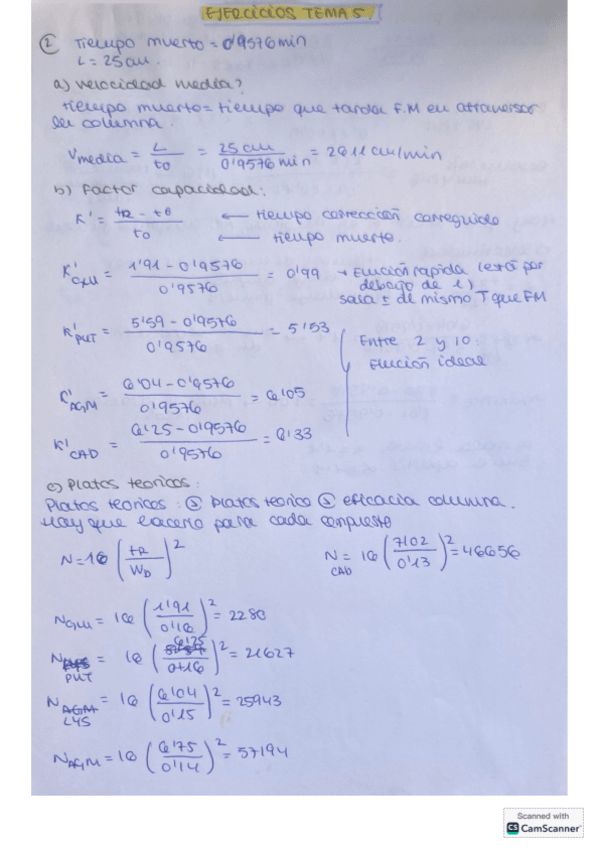 EJERCICIOS TEMA 5.
② Tiempo muerto = 0'9576 min
L = 25 cm.
a) velocidad media?
tiempo muerto = tiempo que tarda F.M en atravesar
la columna
Vmedia = L / to = 25 cm / 0'9576 min = 26'11 cm/min
b) Factor capacidad:
K' = tR - to / to ← tiempo corrección correguido
← tiempo muerto.
K'GLU = 1'91 - 0'9576 / 0'9576 = 0'99 → Elución rapida (está por
debajo de 1)
sala ± de mismo T que FM
K'PUT = 5'59 - 0'9576 / 0'9576 = 5'53
Entre 2 y 10:
Elución ideal
K'AGM = 6'04 - 0'9576 / 0'9576 = 6'05
K'CAD = 6'25 - 0'9576 / 0'9576 = 6'33
c) Platos teoricos:
Platos teoricos: platos teorico eficacia columna.
Hay que hacerlo para cada compuesto
N = 16 (tR / WD)² NCAD = 16 (7'02 / 0'13)² = 46656
NGLU = 16 (1'91 / 0'16)² = 2280
NPUT = 16 (6'25 / 0'16)² = 21627
N AGM LYS = 16 (6'04 / 0'15)² = 25943
NAGM = 16 (6'75 / 0'14)² = 57194
Scanned with
CS CamScanner